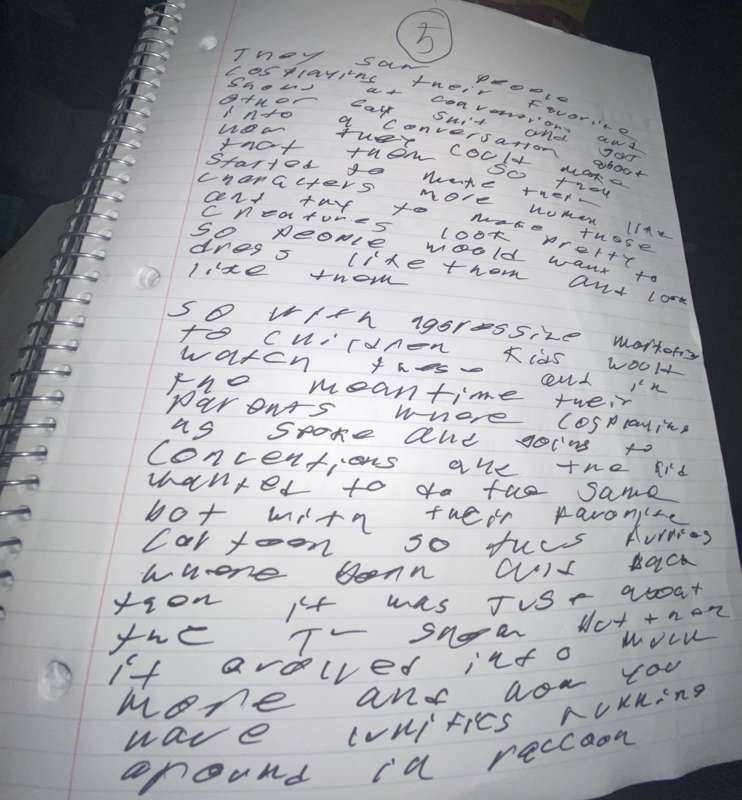 5
They saw people
cosplaying their favorite
shows at conventions and
other eat shit and got
into a conversation about
how they could make
that them so they
started to make their
characters more human like
and try to make those
creatures look pretty
so people would want to
dress like them and look
like them
so with aggressize marketing
to children kids would
watch these and in
the meantime their
parents where cosplaying
as spoke and going to
conventions and the kid
wanted to do the same
bot with their favorite
cartoon so thus furries
where born and back
then it was JUST about
the TV show but then
it arolved into much
more and now you
have lunitics running
around in raccoon